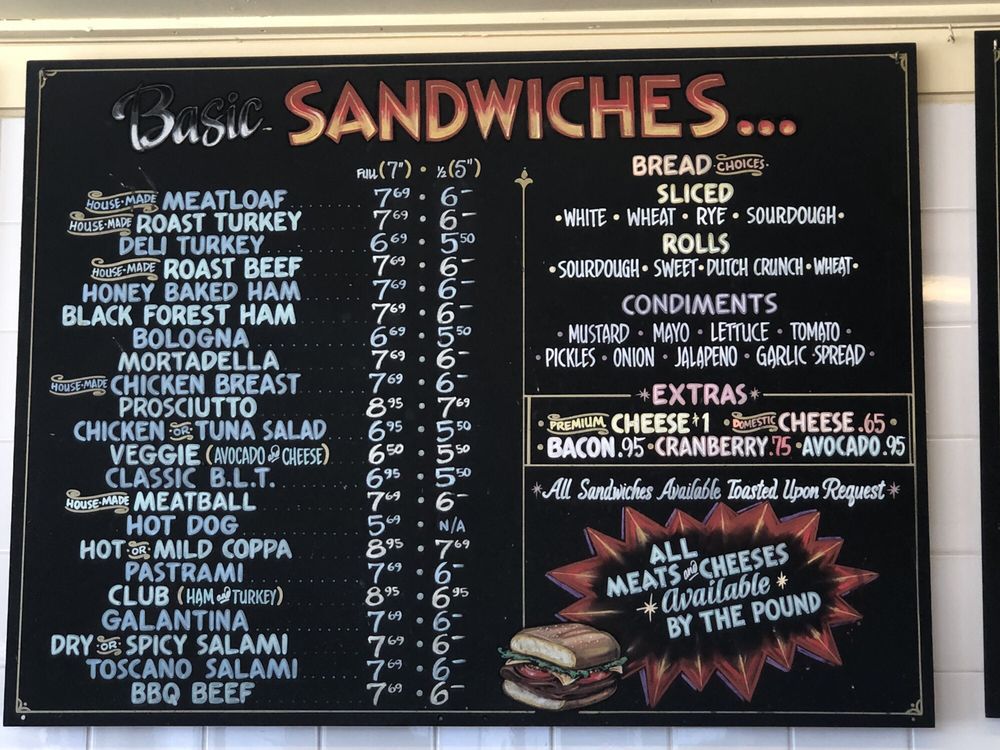 Basic SANDWICHES...
FULL (7") • ½ (5")
HOUSE-MADE MEATLOAF 7.69 • 6-
HOUSE-MADE ROAST TURKEY 7.69 • 6-
DELI TURKEY 6.69 • 5.50
HOUSE-MADE ROAST BEEF 7.69 • 6-
HONEY BAKED HAM 7.69 • 6-
BLACK FOREST HAM 7.69 • 6-
BOLOGNA 6.69 • 5.50
MORTADELLA 7.69 • 6-
HOUSE-MADE CHICKEN BREAST 7.69 • 6-
PROSCIUTTO 8.95 • 7.69
CHICKEN OR TUNA SALAD 6.95 • 5.50
VEGGIE (AVOCADO and CHEESE) 6.50 • 5.50
CLASSIC B.L.T. 6.95 • 5.50
HOUSE-MADE MEATBALL 7.69 • 6-
HOT DOG 5.69 • N/A
HOT OR MILD COPPA 8.95 • 7.69
PASTRAMI 7.69 • 6-
CLUB (HAM and TURKEY) 8.95 • 6.95
GALANTINA 7.69 • 6-
DRY OR SPICY SALAMI 7.69 • 6-
TOSCANO SALAMI 7.69 • 6-
BBQ BEEF 7.69 • 6-
BREAD CHOICES
SLICED
• WHITE • WHEAT • RYE • SOURDOUGH •
ROLLS
• SOURDOUGH • SWEET • DUTCH CRUNCH • WHEAT •
CONDIMENTS
• MUSTARD • MAYO • LETTUCE • TOMATO •
• PICKLES • ONION • JALAPENO • GARLIC SPREAD •
EXTRAS
• PREMIUM CHEESE $1 DOMESTIC CHEESE .65 •
• BACON .95 • CRANBERRY .75 • AVOCADO .95
All Sandwiches Available Toasted Upon Request
ALL
MEATS and CHEESES
available
BY THE POUND